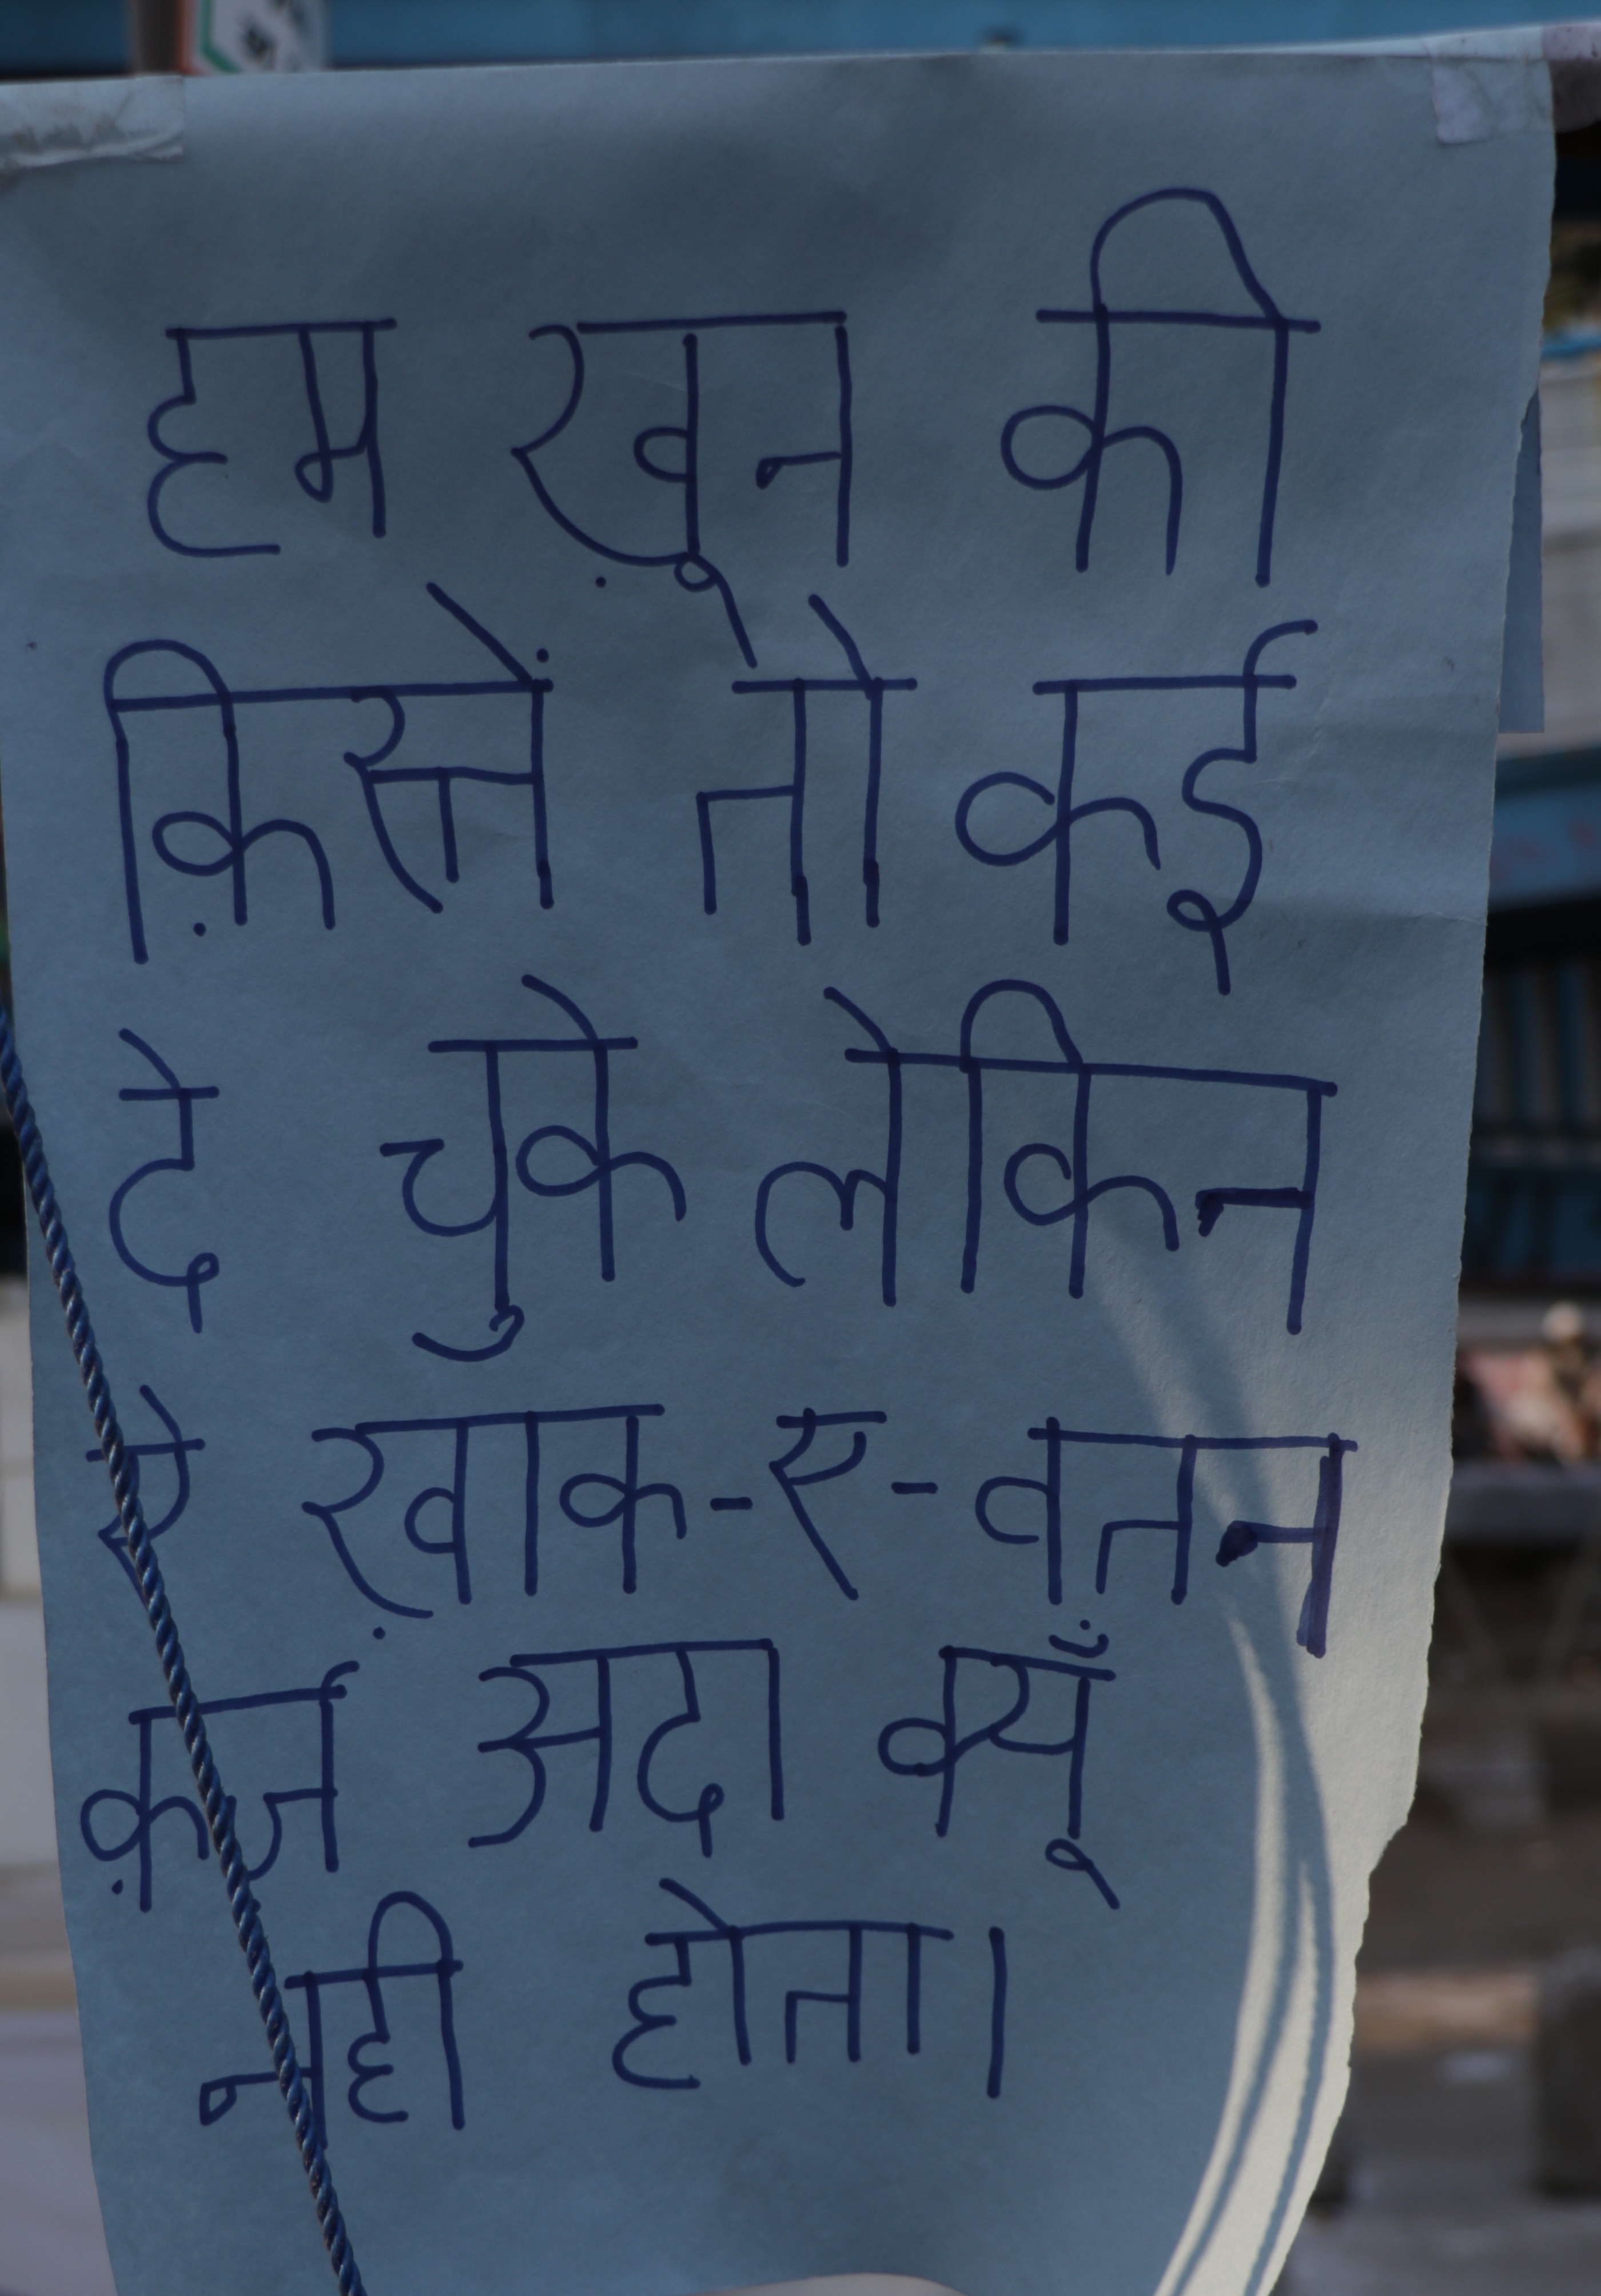 हम ख़ून की
क़िस्तें तो कई
दे चुके लेकिन
ऐ ख़ाक-ए-वतन
क़र्ज अदा क्यूँ
नही होता।